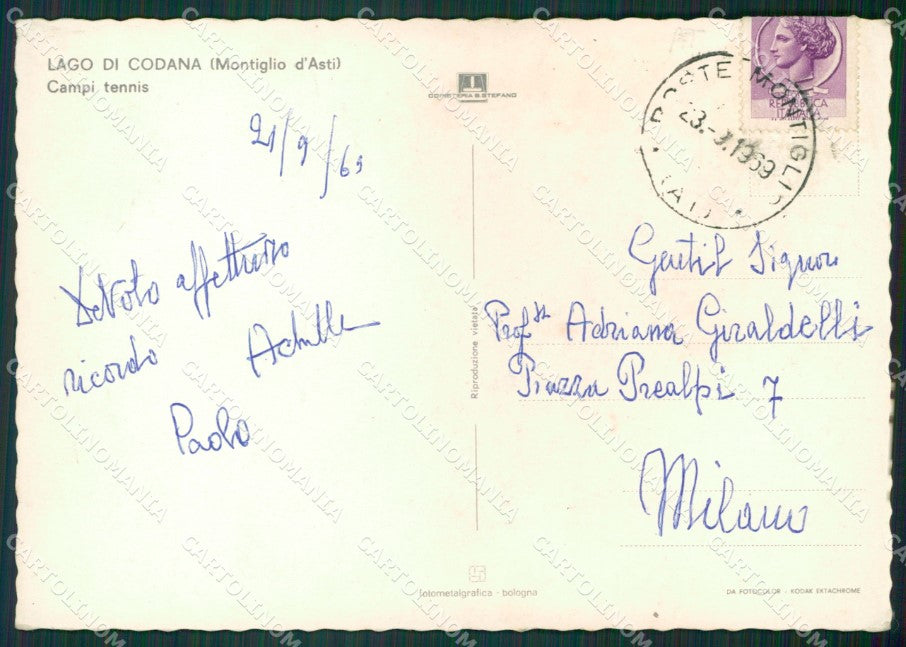 LAGO DI CODANA (Montiglio d'Asti)
Campi tennis
21/9/69
Devoto affettuoso
ricordo Achille
Paolo
S. STEFANO
POSTE MONTIGLIO
23.-9.1969
(AT)
Gentil Signora
Prof.ssa Adriana Giraldelli
Piazza Prealpi 7
Milano
Riproduzione vietata
fotometalgrafica - bologna
DA FOTOCOLOR - KODAK EKTACHROME
CARTOLINOMANIA